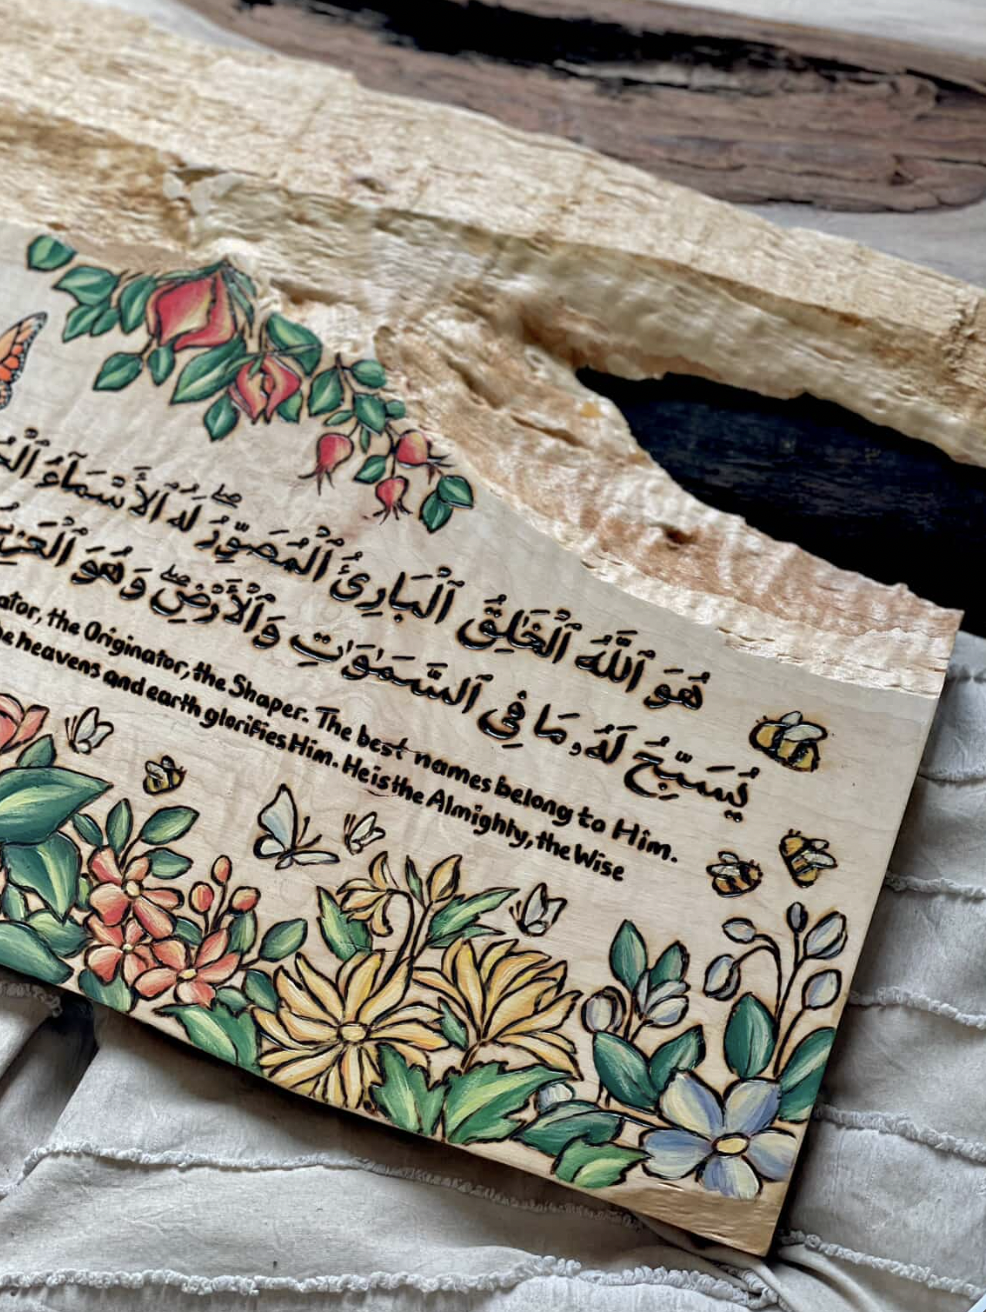 هُوَ ٱللَّهُ ٱلْخَٰلِقُ ٱلْبَارِئُ ٱلْمُصَوِّرُ ۖ لَهُ ٱلْأَسْمَآءُ
يُسَبِّحُ لَهُۥ مَا فِى ٱلسَّمَٰوَٰتِ وَٱلْأَرْضِ ۖ وَهُوَ
the Originator, the Shaper. The best names belong to Him.
heavens and earth glorifies Him. He is the Almighty, the Wise